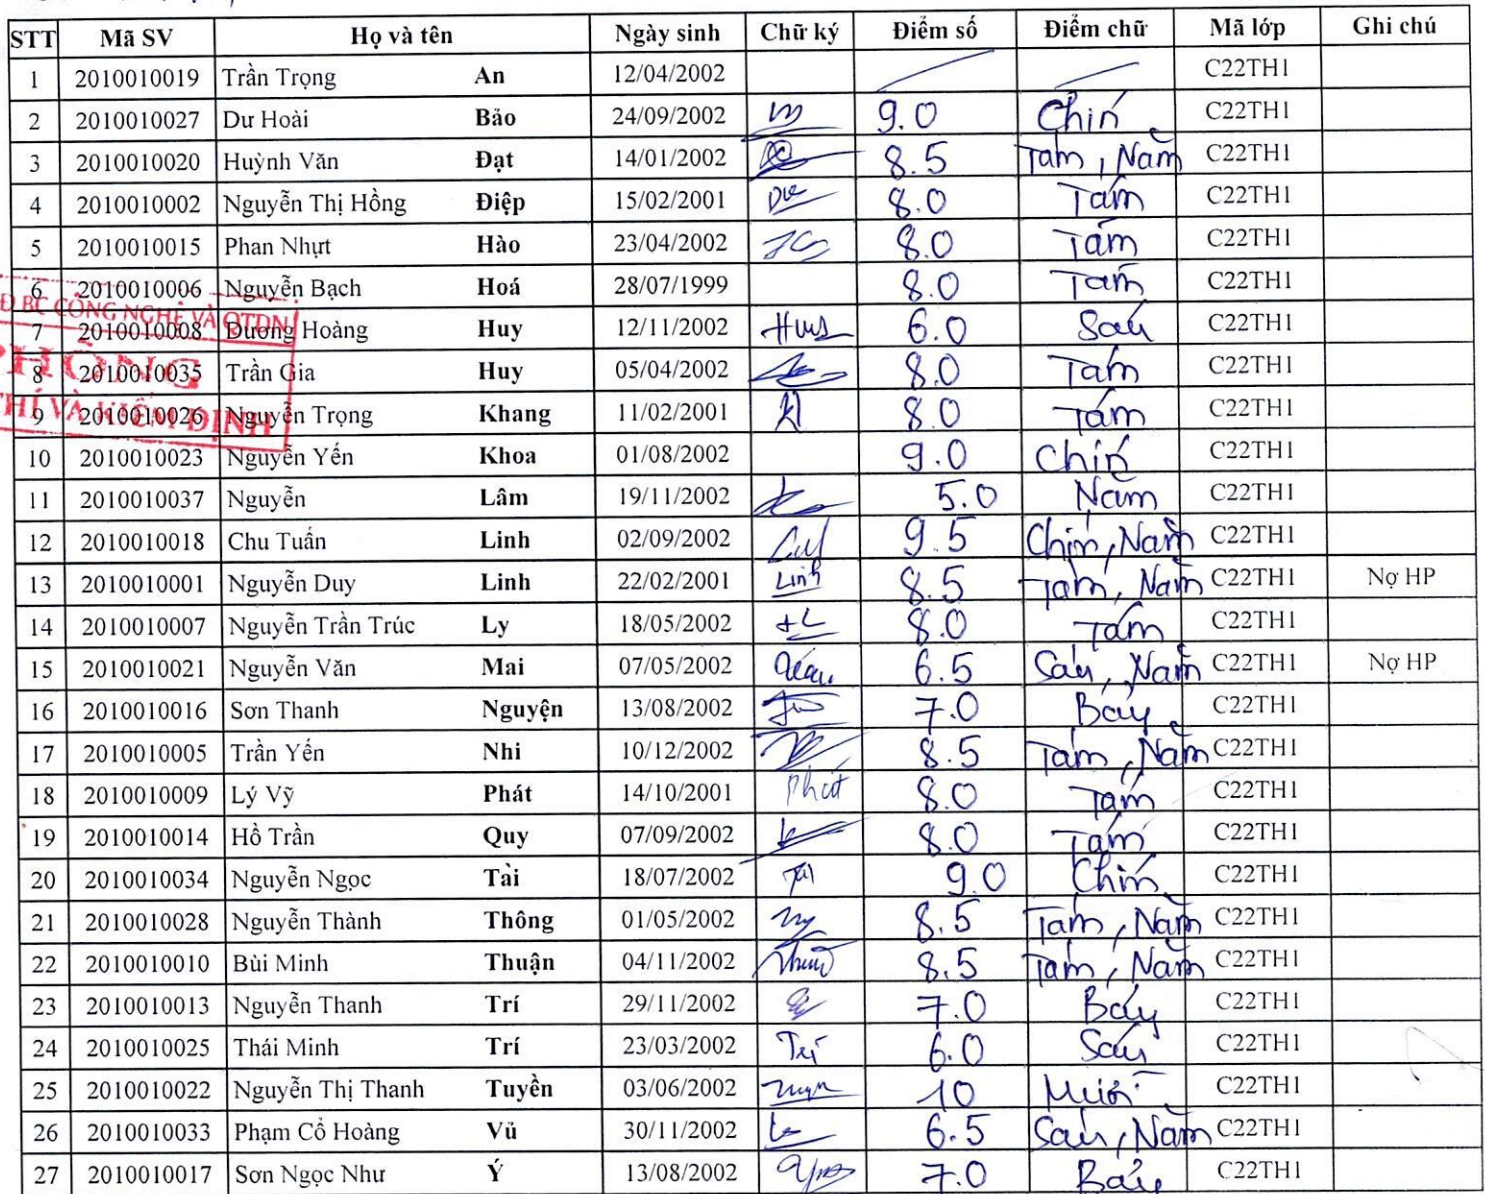 STT Mã SV Họ và tên Ngày sinh Chữ ký Điểm số Điểm chữ Mã lớp Ghi chú
1 2010010019 Trần Trọng An 12/04/2002 C22TH1
2 2010010027 Dư Hoài Bảo 24/09/2002 9.0 Chín C22TH1
3 2010010020 Huỳnh Văn Đạt 14/01/2002 8.5 Tám, Năm C22TH1
4 2010010002 Nguyễn Thị Hồng Điệp 15/02/2001 8.0 Tám C22TH1
5 2010010015 Phan Nhựt Hào 23/04/2002 8.0 Tám C22TH1
6 2010010006 Nguyễn Bạch Hoá 28/07/1999 8.0 Tám C22TH1
Đ BC CÔNG NGHỆ VÀ QTDN
7 2010010008 Dương Hoàng Huy 12/11/2002 6.0 Sáu C22TH1
PHÒNG
8 2010010035 Trần Gia Huy 05/04/2002 8.0 Tám C22TH1
THÍ VÀ KIỂM ĐỊNH
9 2010010026 Nguyễn Trọng Khang 11/02/2001 8.0 Tám C22TH1
10 2010010023 Nguyễn Yến Khoa 01/08/2002 9.0 Chín C22TH1
11 2010010037 Nguyễn Lâm 19/11/2002 5.0 Năm C22TH1
12 2010010018 Chu Tuấn Linh 02/09/2002 9.5 Chín, Năm C22TH1
13 2010010001 Nguyễn Duy Linh 22/02/2001 Linh 8.5 Tám, Năm C22TH1 Nợ HP
14 2010010007 Nguyễn Trần Trúc Ly 18/05/2002 8.0 Tám C22TH1
15 2010010021 Nguyễn Văn Mai 07/05/2002 6.5 Sáu, Năm C22TH1 Nợ HP
16 2010010016 Sơn Thanh Nguyện 13/08/2002 7.0 Bảy C22TH1
17 2010010005 Trần Yến Nhi 10/12/2002 8.5 Tám, Năm C22TH1
18 2010010009 Lý Vỹ Phát 14/10/2001 Phát 8.0 Tám C22TH1
19 2010010014 Hồ Trần Quy 07/09/2002 8.0 Tám C22TH1
20 2010010034 Nguyễn Ngọc Tài 18/07/2002 9.0 Chín C22TH1
21 2010010028 Nguyễn Thành Thông 01/05/2002 8.5 Tám, Năm C22TH1
22 2010010010 Bùi Minh Thuận 04/11/2002 8.5 Tám, Năm C22TH1
23 2010010013 Nguyễn Thanh Trí 29/11/2002 7.0 Bảy C22TH1
24 2010010025 Thái Minh Trí 23/03/2002 Trí 6.0 Sáu C22TH1
25 2010010022 Nguyễn Thị Thanh Tuyền 03/06/2002 10 Mười C22TH1
26 2010010033 Phạm Cổ Hoàng Vũ 30/11/2002 6.5 Sáu, Năm C22TH1
27 2010010017 Sơn Ngọc Như Ý 13/08/2002 7.0 Bảy C22TH1